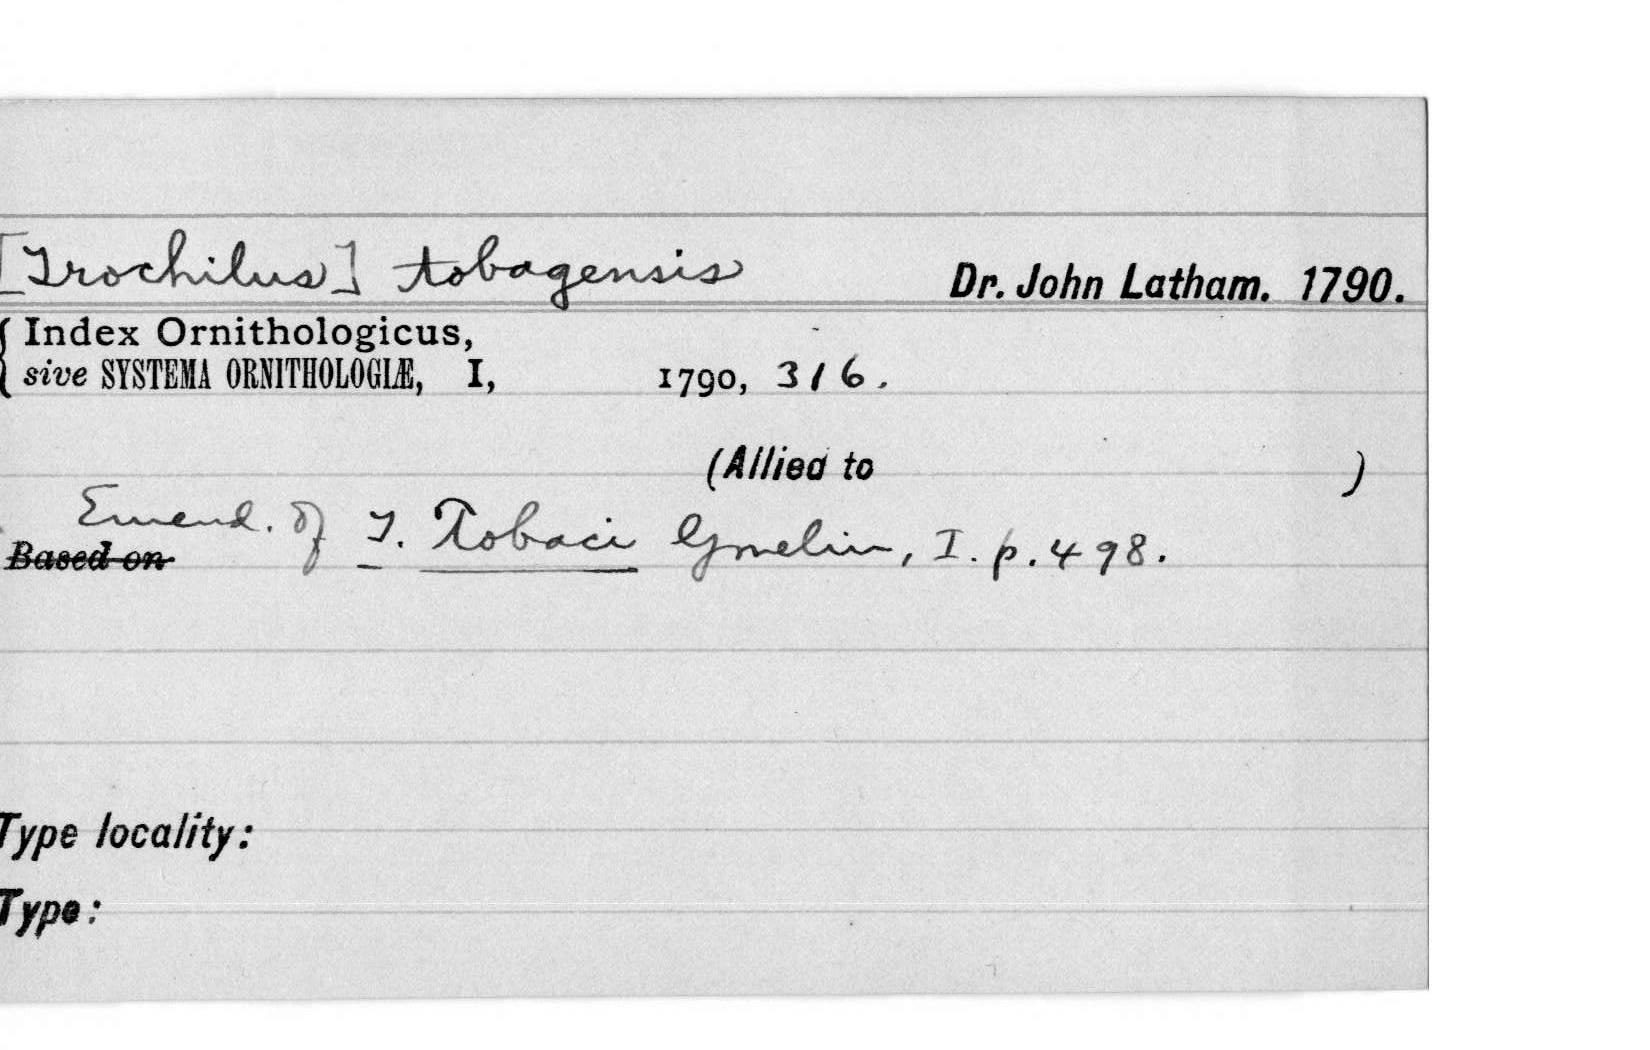 [Trochilus] tobagensis Dr. John Latham. 1790.
Index Ornithologicus,
sive SYSTEMA ORNITHOLOGIÆ, I, 1790, 316.
(Allied to )
Emend. of T. Tobaci Gmelin, I. p. 498.
Based on
Type locality:
Type: